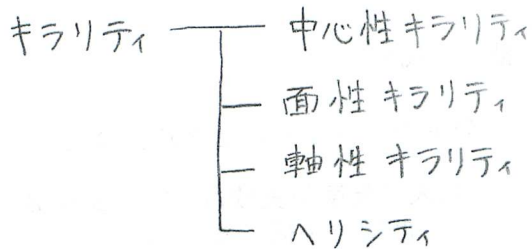 キラリティ 中心性キラリティ
面性キラリティ
軸性キラリティ
ヘリシティ